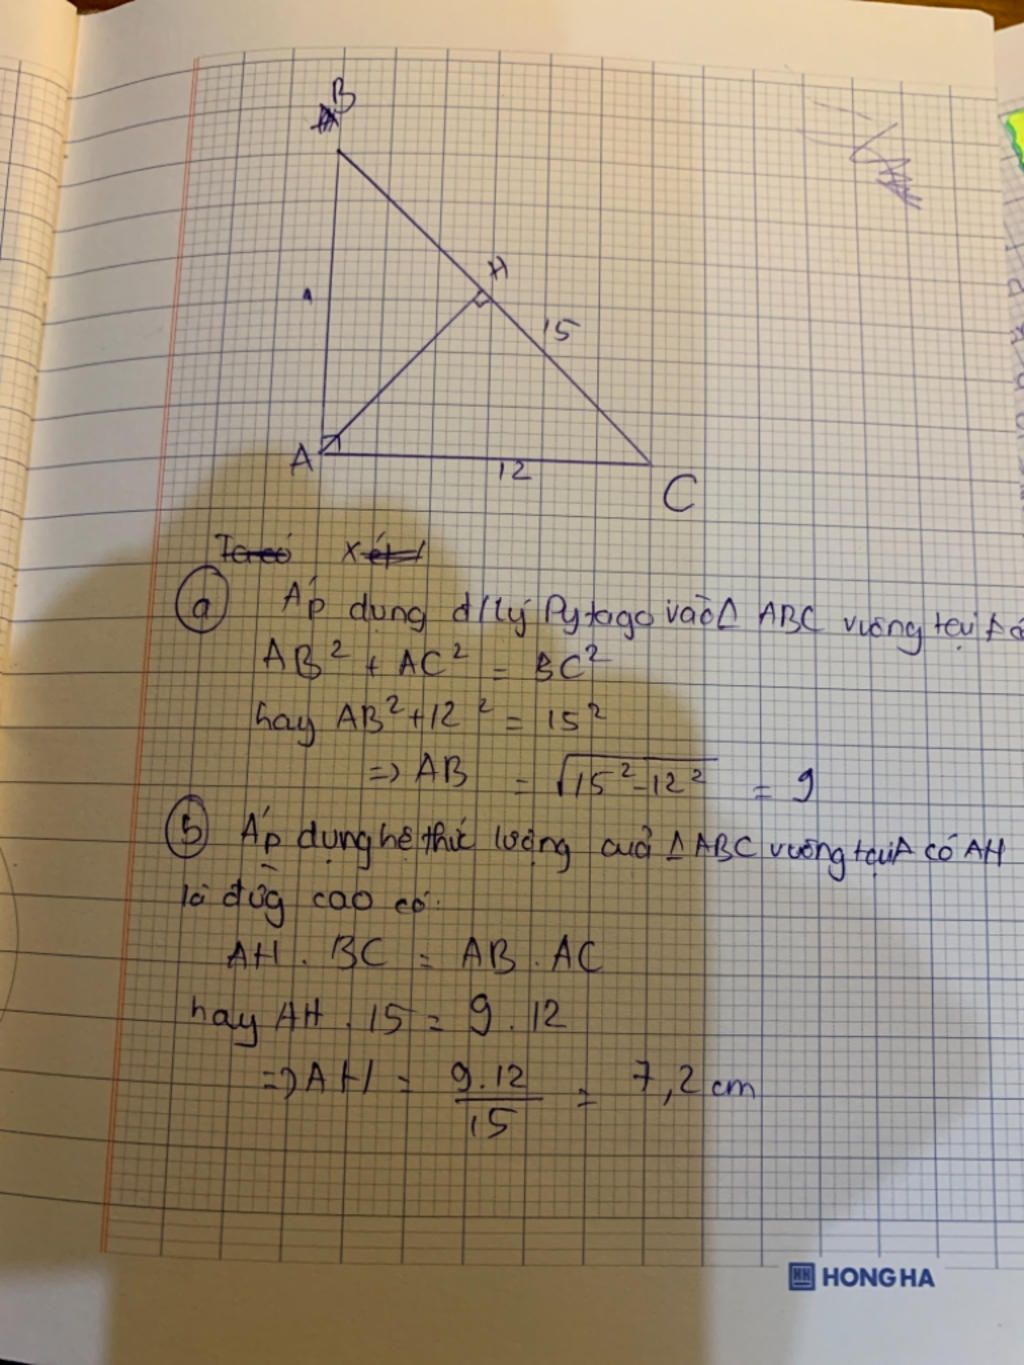 B
H
15
A
12
C
a Áp dụng đ/lý Pytago vào Δ ABC vuông tại A có
AB² + AC² = BC²
hay AB² + 12² = 15²
=> AB = √15² - 12² = 9
b Áp dụng hệ thức lượng của Δ ABC vuông tại A có AH
là đừg cao có:
AH . BC = AB . AC
hay AH . 15 = 9 . 12
=> AH = 9.12/15 = 7,2 cm
HONG HA